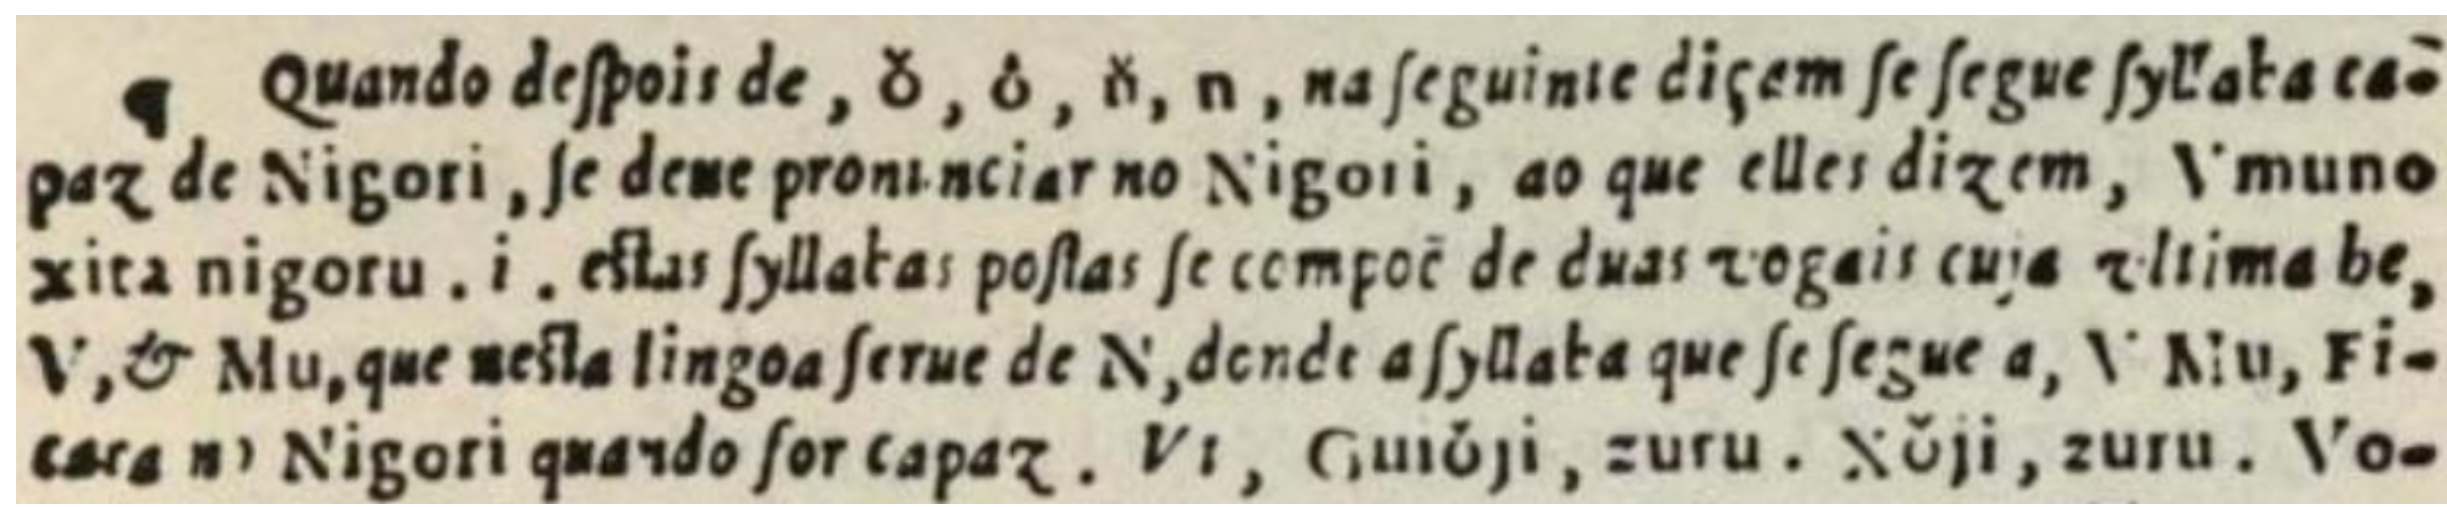 ¶ Quando deſpois de, ǒ, ô, ň, n, na ſeguinte diçam ſe ſegue ſyllaba ca-
paz de Nigori, ſe deue pronunciar no Nigori, ao que elles dizem, Vmuno
xita nigoru. i. eſtas ſyllabas poſtas ſe compoẽ de duas vogais cuja vltima he,
V, & Mu, que neſta lingoa ſerue de N, donde a ſyllaba que ſe ſegue a, V Mu, Fi-
cara no Nigori quando for capaz. Vt, Guiǒji, zuru. Xǒji, zuru. Vo-